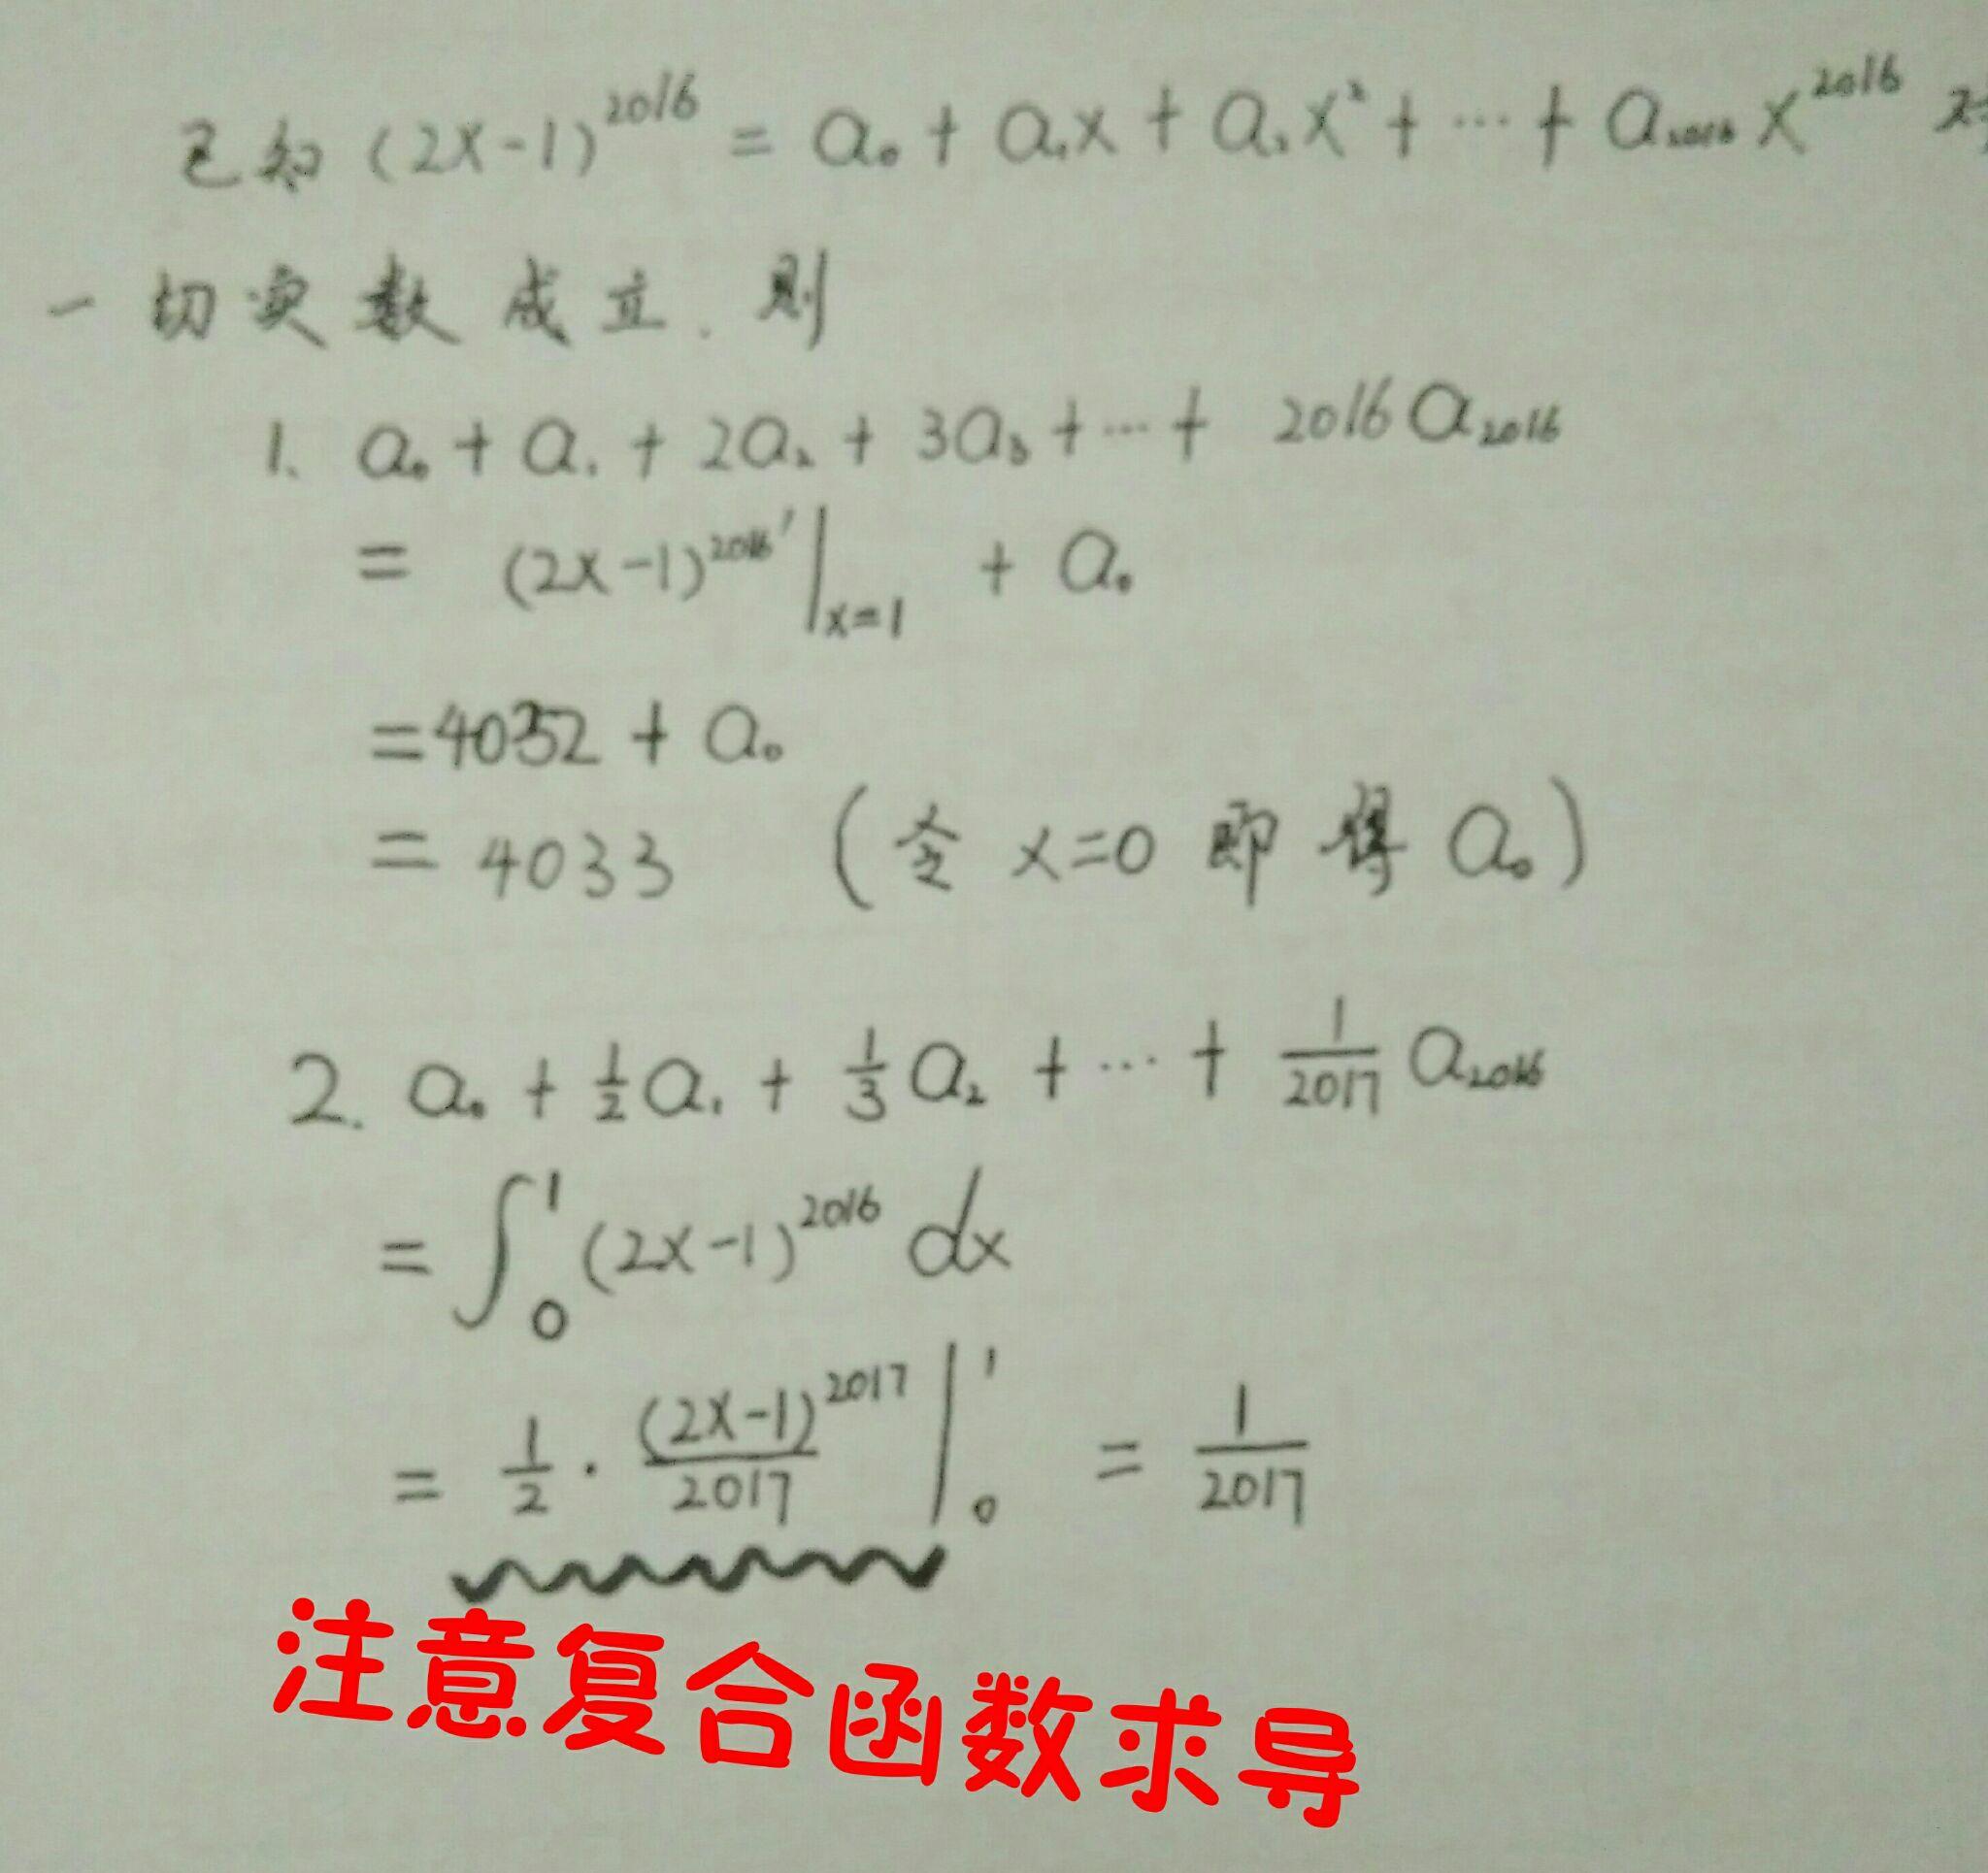 已知 (2x-1)^2016 = a₀ + a₁x + a₂x² + ⋯ + a₂₀₁₆ x^2016 对
一切实数成立. 则
1. a₀ + a₁ + 2a₂ + 3a₃ + ⋯ + 2016a₂₀₁₆
= (2x-1)^2016′ |x=1 + a₀
=4032 + a₀
= 4033 (令 x=0 即得 a₀)
2. a₀ + 1/2 a₁ + 1/3 a₂ + ⋯ + 1/2017 a₂₀₁₆
= ∫₀¹ (2x-1)^2016 dx
= 1/2 · (2x-1)^2017/2017 |₀¹ = 1/2017
注意复合函数求导